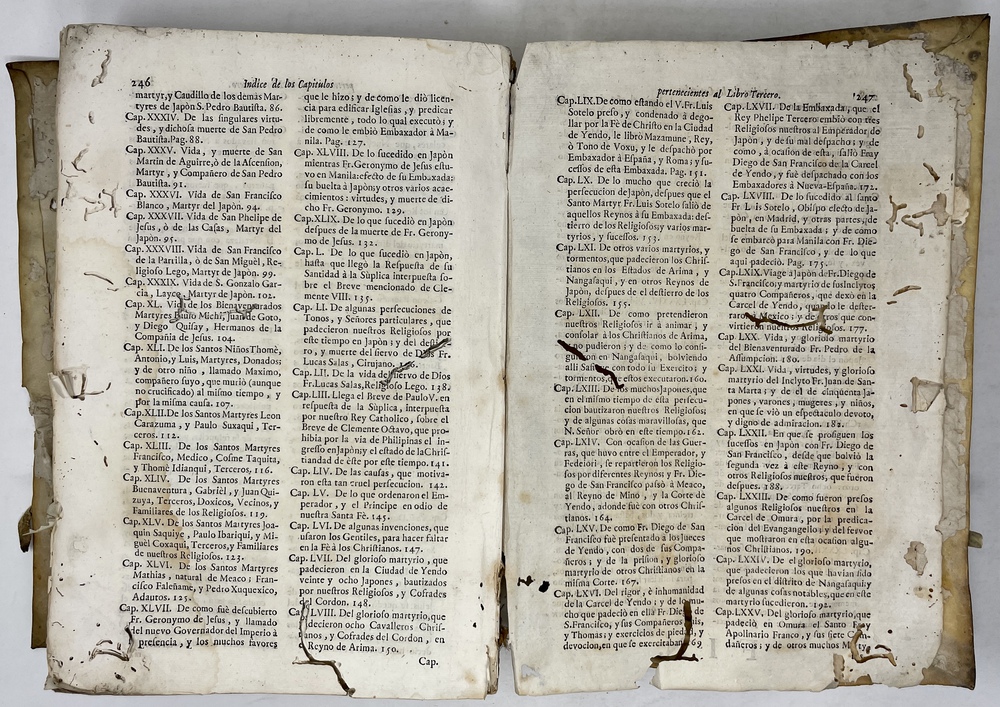 246
Indice de los Capitulos
martyr, y Caudillo de los demàs Mar-
tyres de Japòn S. Pedro Bautista. 86.
Cap. XXXIV. De las singulares virtu-
des, y dichosa muerte de San Pedro
Bautista. Pag. 88.
Cap. XXXV. Vida, y muerte de San
Martin de Aguirre, ò de la Ascension,
Martyr, y Compañero de San Pedro
Bautista. 91.
Cap. XXXVI. Vida de San Francisco
Blanco, Martyr del Japòn. 94.
Cap. XXXVII. Vida de San Phelipe de
Jesus, ò de las Casas, Martyr del
Japòn. 95.
Cap. XXXVIII. Vida de San Francisco
de la Parrilla, ò de San Miguèl, Re-
ligioso Lego, Martyr de Japòn. 99.
Cap. XXXIX. Vida de S. Gonzalo Gar-
cia, Layco, Martyr de Japòn. 102.
Cap. XL. Vida de los Bienaventurados
Martyres Paulo Michi, Juan de Goto,
y Diego Quisay, Hermanos de la
Compañia de Jesus. 104.
Cap. XLI. De los Santos Niños Thomè,
Antonio, y Luis, Martyres, Donados;
y de otro niño, llamado Maximo,
compañero suyo, que muriò (aunque
no crucificado) al mismo tiempo, y
por la misma causa. 107.
Cap. XLII. De los Santos Martyres Leon
Carazuma, y Paulo Suxaqui, Ter-
ceros. 112.
Cap. XLIII. De los Santos Martyres
Francisco, Medico, Cosme Taquita,
y Thomè Idianqui, Terceros, 116.
Cap. XLIV. De los Santos Martyres
Buenaventura, Gabriel, y Juan Qui-
zuya, Terceros, Doxicos, Vecinos, y
Familiares de los Religiosos. 119.
Cap. XLV. De los Santos Martyres Joa-
quin Saquiye, Paulo Ibariqui, y Mi-
guèl Coxaqui, Terceros, y Familiares
de nuestros Religiosos. 123.
Cap. XLVI. De los Santos Martyres
Mathias, natural de Meaco; Fran-
cisco Faleñame, y Pedro Xuquexico,
Adautos. 125.
Cap. XLVII. De como fuè descubierto
Fr. Geronymo de Jesus, y llamado
del nuevo Governador del Imperio à
presencia, y los muchos favores
que le hizo; y de como le diò licen-
cia para edificar Iglesias, y predicar
libremente, todo lo qual executò; y
de como le embiò Embaxador à Ma-
nila. Pag. 127.
Cap. XLVIII. De lo sucedido en Japòn
mientras Fr. Geronymo de Jesus estu-
vo en Manila: efecto de su Embaxada:
su buelta à Japòn; y otros varios acae-
cimientos: virtudes, y muerte de di-
cho Fr. Geronymo. 129.
Cap. XLIX. De lo que sucediò en Japòn
despues de la muerte de Fr. Gerony-
mo de Jesus. 132.
Cap. L. De lo que sucediò en Japòn,
hasta que llegò la Respuesta de su
Santidad à la Sùplica interpuesta so-
bre el Breve mencionado de Cle-
mente VIII. 135.
Cap. LI. De algunas persecuciones de
Tonos, y Señores particulares, que
padecieron nuestros Religiosos por
este tiempo en Japòn; y del destier-
ro, y muerte del siervo de Dios Fr.
Lucas Salas, Cirujano.
Cap. LII. De la vida del siervo de Dios
Fr. Lucas Salas, Religioso Lego. 138.
Cap. LIII. Llega el Breve de Paulo V. en
respuesta de la Sùplica, interpuesta
por nuestro Rey Catholico, sobre el
Breve de Clemente Octavo, que pro-
hibia por la via de Philipinas el in-
gresso en Japòn; y el estado de la Chris-
tiandad de este por este tiempo. 141.
Cap. LIV. De las causas, que motiva-
ron esta tan cruel persecucion. 142.
Cap. LV. De lo que ordenaron el Em-
perador, y el Principe en odio de
nuestra Santa Fè. 145.
Cap. LVI. De algunas invenciones, que
usaron los Gentiles, para hacer faltar
en la Fè à los Christianos. 147.
Cap. LVII. Del glorioso martyrio, que
padecieron en la Ciudad de Yendo
veinte y ocho Japones, bautizados
por nuestros Religiosos, y Cofrades
del Cordon. 148.
Cap. LVIII. Del glorioso martyrio, que
padecieron ocho Cavalleros Chris-
tianos, y Cofrades del Cordon, en
Reyno de Arima. 150.
Cap.
pertenecientes al Libro Tercero.
247
Cap. LIX. De como estando el V. Fr. Luis
Sotelo preso, y condenado à dego-
llar por la Fè de Christo en la Ciudad
de Yendo, le librò Mazamune, Rey,
ò Tono de Voxu, y le despachò por
Embaxador à España, y Roma; y su-
cessos de esta Embaxada. Pag. 151.
Cap. LX. De lo mucho que creciò la
persecucion de Japòn, despues que el
Santo Martyr Fr. Luis Sotelo saliò de
aquellos Reynos à su Embaxada: des-
tierro de los Religiosos; y varios mar-
tyrios, y sucessos. 153.
Cap. LXI. De otros varios martyrios, y
tormentos, que padecieron los Chris-
tianos en los Estados de Arima, y
Nangasaqui, y en otros Reynos de
Japòn, despues de el destierro de los
Religiosos. 155.
Cap. LXII. De como pretendieron
nuestros Religiosos ir à animar, y
consolar à los Christianos de Arima,
no pudieron; y de como lo consi-
guieron en Nangasaqui, bolviendo
alli Safioye con todo su Exercito; y
tormentos, que estos executaron. 160.
Cap. LXIII. De los muchos Japones, que
en el mismo tiempo de esta persecu-
cion bautizaron nuestros Religiosos;
y de algunas cosas maravillosas, que
N. Señor obrò en este tiempo. 162.
Cap. LXIV. Con ocasion de las Guer-
ras, que huvo entre el Emperador, y
Fedeiori, se repartieron los Religio-
sos por diferentes Reynos: y Fr. Die-
go de San Francisco passò à Meaco,
al Reyno de Mino, y la Corte de
Yendo, adonde fuè con otros Chris-
tianos. 164.
Cap. LXV. De como Fr. Diego de San
Francisco fuè presentado à los Jueces
de Yendo, con dos de sus Compa-
ñeros; y de la prision, y glorioso
martyrio de otros Christianos en la
misma Corte. 167.
Cap. LXVI. Del rigor, è inhumanidad
de la Carcel de Yendo; y de lo mu-
cho que padeciò en ella Fr. Diego de
S. Francisco, y sus Compañeros Luis,
y Thomas; y exercicios de piedad, y
devocion, en que se exercitaban. 169.
Cap. LXVII. De la Embaxada, que el
Rey Phelipe Tercero embiò con tres
Religiosos nuestros al Emperador de
Japòn, y de su mal despacho; y de
como, à ocasion de esta, saliò Fray
Diego de San Francisco de la Carcel
de Yendo, y fuè despachado con los
Embaxadores à Nueva-España. 172.
Cap. LXVIII. De lo sucedido al santo
Fr. Luis Sotelo, Obispo electo de Ja-
pòn, en Madrid, y otras partes, de
buelta de su Embaxada; y de como
se embarcò para Manila con Fr. Die-
go de San Francisco, y de lo que
aqui padeciò. Pag. 175.
Cap. LXIX. Viage à Japòn de Fr. Diego de
S. Francisco, y martyrio de sus Inclytos
quatro Compañeros, que dexò en la
Carcel de Yendo, quando le dester-
raron à Mexico; y de otros que con-
virtieron nuestros Religiosos. 177.
Cap. LXX. Vida, y glorioso martyrio
del Bienaventurado Fr. Pedro de la
Assumpcion. 180.
Cap. LXXI. Vida, virtudes, y glorioso
martyrio del Inclyto Fr. Juan de San-
ta Marta; y de el de cinquenta Ja-
pones, varones, mugeres, y niños,
en que se viò un espectaculo devoto,
y digno de admiracion. 182.
Cap. LXXII. En que se prosiguen los
sucessos en Japòn con Fr. Diego de
San Francisco, desde que bolviò la
segunda vez à este Reyno, y con
otros Religiosos nuestros, que fueron
despues. 188.
Cap. LXXIII. De como fueron presos
algunos Religiosos nuestros en la
Carcel de Omura, por la predica-
cion del Evangangelio: y del fervor
que mostraron en esta ocasion algu-
nos Christianos. 190.
Cap. LXXIV. De el glorioso martyrio,
que padecieron los que havian sido
presos en el distrito de Nangasaqui; y
de algunas cosas notables, que en este
martyrio sucedieron. 192.
Cap. LXXV. Del glorioso martyrio, que
padeciò en Omura el Santo Fray
Apolinario Franco, y sus siete Com-
pañeros; y de otros muchos Marty-